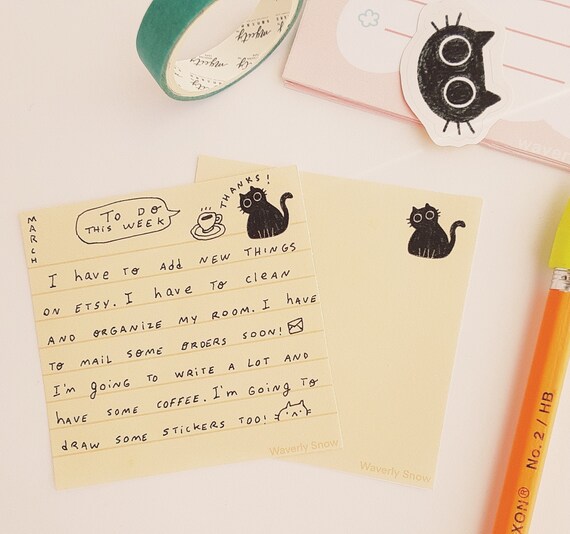 myuity
Waverly Snow
Waverly Snow
MARCH
TO DO
THIS WEEK
THANKS!
I have TO ADD NEW THINGS
ON ETSY. I HAVE TO CLEAN
AND ORGANIZE MY ROOM. I HAVE
TO MAIL SOME ORDERS SOON!
I'm going TO WRITE A LOT AND
have SOME COFFEE. I'm GOING TO
dRAW SOME STICKERS TOO!
Waverly Snow
Waverly Snow
XON® No. 2 / HB